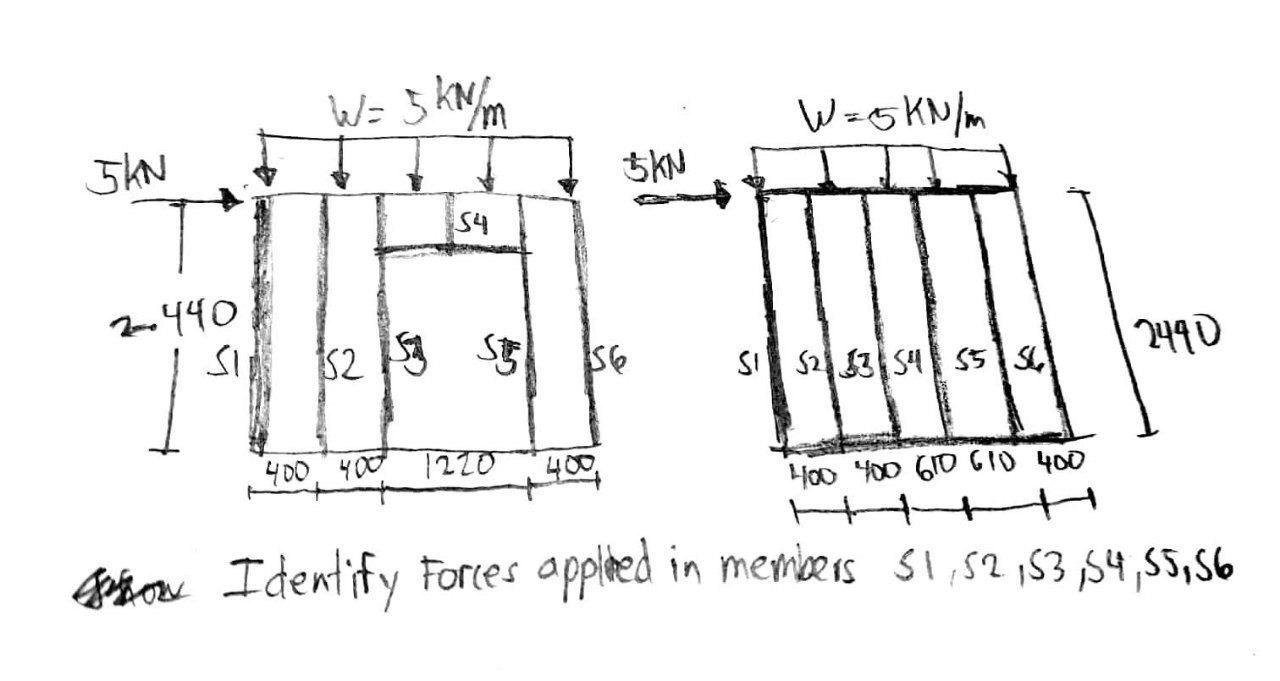 W= 5 KN/m
W=5KN/m
5KN
5KN
S4
2.440
2490
S1 S2 S3 S5 S6
S1 S2 S3 S4 S5 S6
400 400 1220 400
400 400 610 610 400
Identify Forces applied in members S1,S2,S3,S4,S5,S6